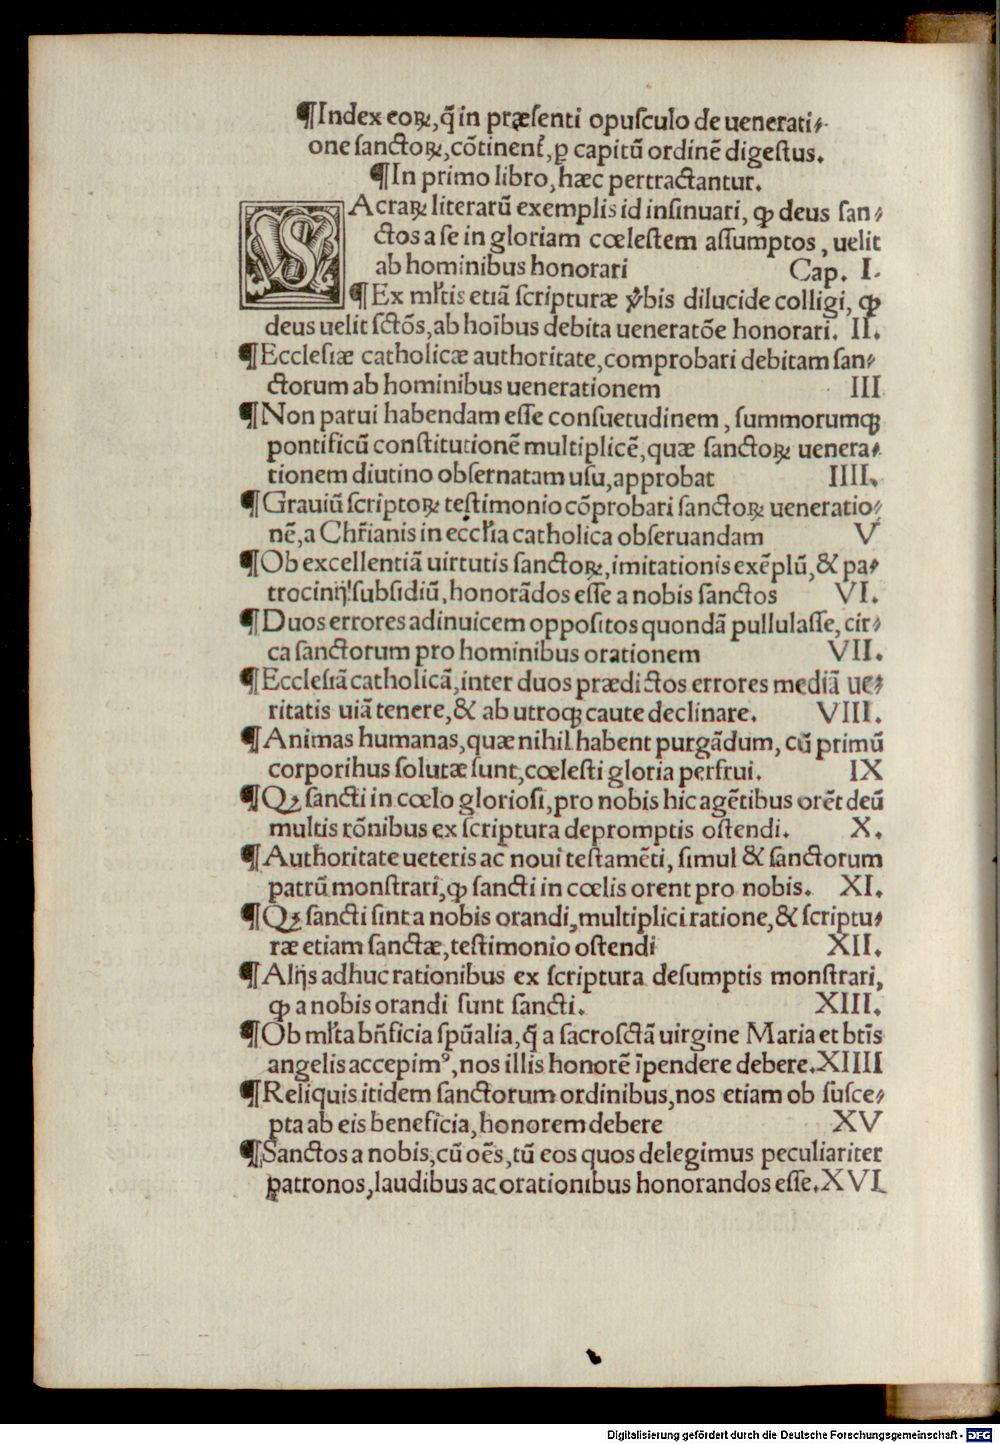 ¶Index eoꝝ, q̃ in præſenti opuſculo de uenerati⸗
one ſanctoꝝ, cõtinent᷑, ꝑ capitũ ordinẽ digeſtus.
¶In primo libro, hæc pertractantur.
SAcraꝝ literarũ exemplis id inſinuari, ꝙ deus ſan⸗
ctos a ſe in gloriam cœleſtem aſſumptos, uelit
ab hominibus honorari Cap. I.
¶Ex ml̃tis etiã ſcripturæ v̓bis dilucide colligi, ꝙ
deus uelit ſctõs, ab hoĩbus debita ueneratõe honorari. II.
¶Eccleſiæ catholicæ authoritate, comprobari debitam ſan⸗
ctorum ab hominibus uenerationem III
¶Non parui habendam eſſe conſuetudinem, ſummorumqꝫ
pontificũ conſtitutionẽ multiplicẽ, quæ ſanctoꝝ uenera⸗
tionem diutino obſernatam uſu, approbat IIII.
¶Grauiũ ſcriptoꝝ teſtimonio cõprobari ſanctoꝝ ueneratio⸗
nẽ, a Chr̃ianis in eccl̃ia catholica obſeruandam V
¶Ob excellentiã uirtutis ſanctoꝝ, imitationis exẽplũ, & pa⸗
trocinĳ ſubſidiũ, honorãdos eſſe a nobis ſanctos VI.
¶Duos errores adinuicem oppoſitos quondã pullulaſſe, cir⸗
ca ſanctorum pro hominibus orationem VII.
¶Eccleſiã catholicã, inter duos prædictos errores mediã ue⸗
ritatis uiã tenere, & ab utroqꝫ caute declinare. VIII.
¶Animas humanas, quæ nihil habent purgãdum, cũ primũ
corporihus ſolutæ ſunt, cœleſti gloria perfrui. IX
¶Qꝫ ſancti in cœlo glorioſi, pro nobis hic agẽtibus orẽt deũ
multis rõnibus ex ſcriptura depromptis oſtendi. X.
¶Authoritate ueteris ac noui teſtamẽti, ſimul & ſanctorum
patrũ monſtrari, ꝙ ſancti in cœlis orent pro nobis. XI.
¶Qꝫ ſancti ſint a nobis orandi, multiplici ratione, & ſcriptu⸗
ræ etiam ſanctæ, teſtimonio oſtendi XII.
¶Alĳs adhuc rationibus ex ſcriptura deſumptis monſtrari,
ꝙ a nobis orandi ſunt ſancti. XIII.
¶Ob ml̃ta bñficia ſpũalia, q̃ a ſacroſctã uirgine Maria et btĩs
angelis accepimꝰ, nos illis honorẽ ĩpendere debere. XIIII
¶Reliquis itidem ſanctorum ordinibus, nos etiam ob ſuſce⸗
pta ab eis beneficia, honorem debere XV
¶Sanctos a nobis, cũ oẽs, tũ eos quos delegimus peculiariter
patronos, laudibus ac orationibus honorandos eſſe. XVI.
Digitalisierung gefördert durch die Deutsche Forschungsgemeinschaft - DFG